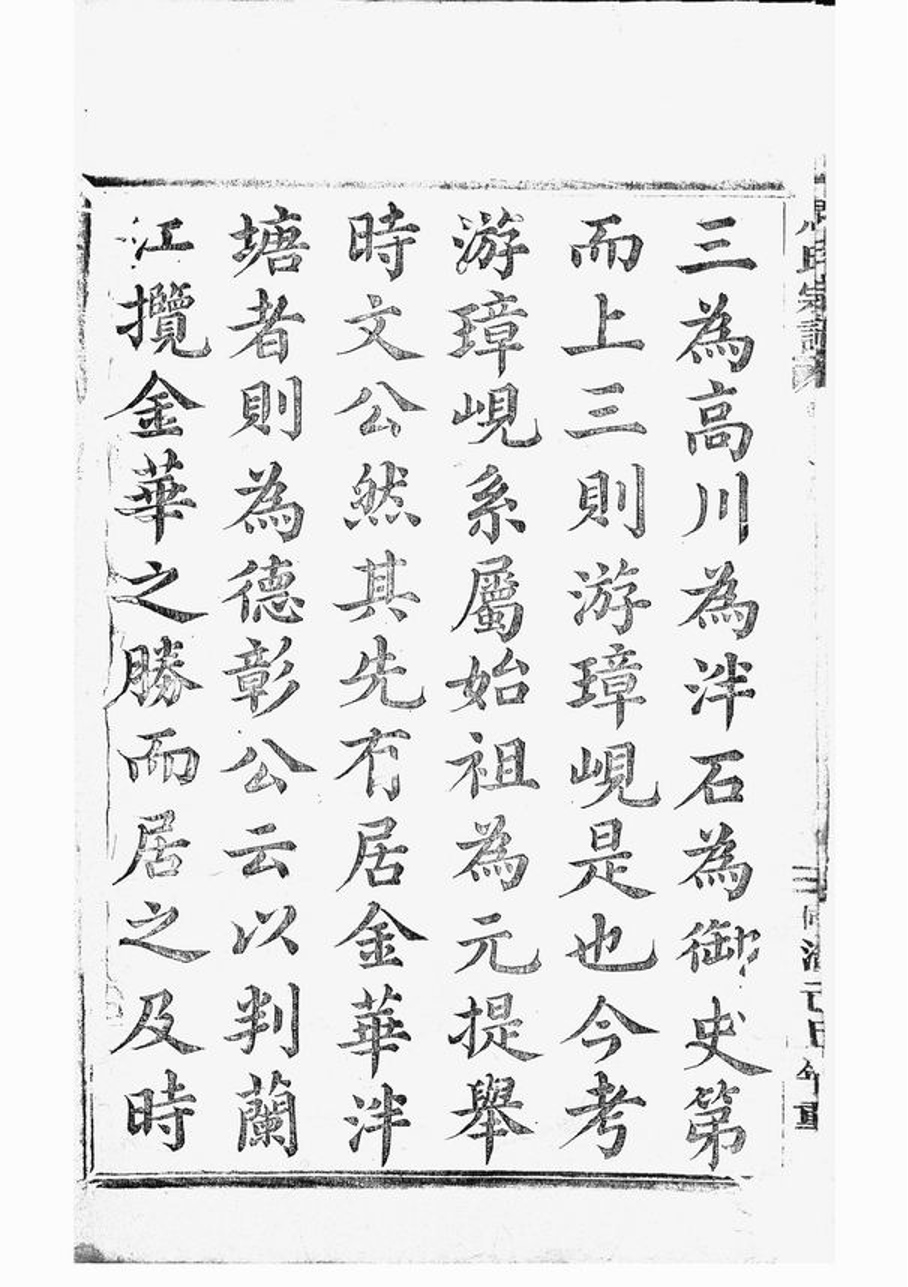 三為高川為泮石為御史第
而上三則游璋峴是也今考
游璋峴系屬始祖為元提舉
時文公然其先冇居金華泮
塘者則為德彰公云以判蘭
江攬金華之勝而居之及時